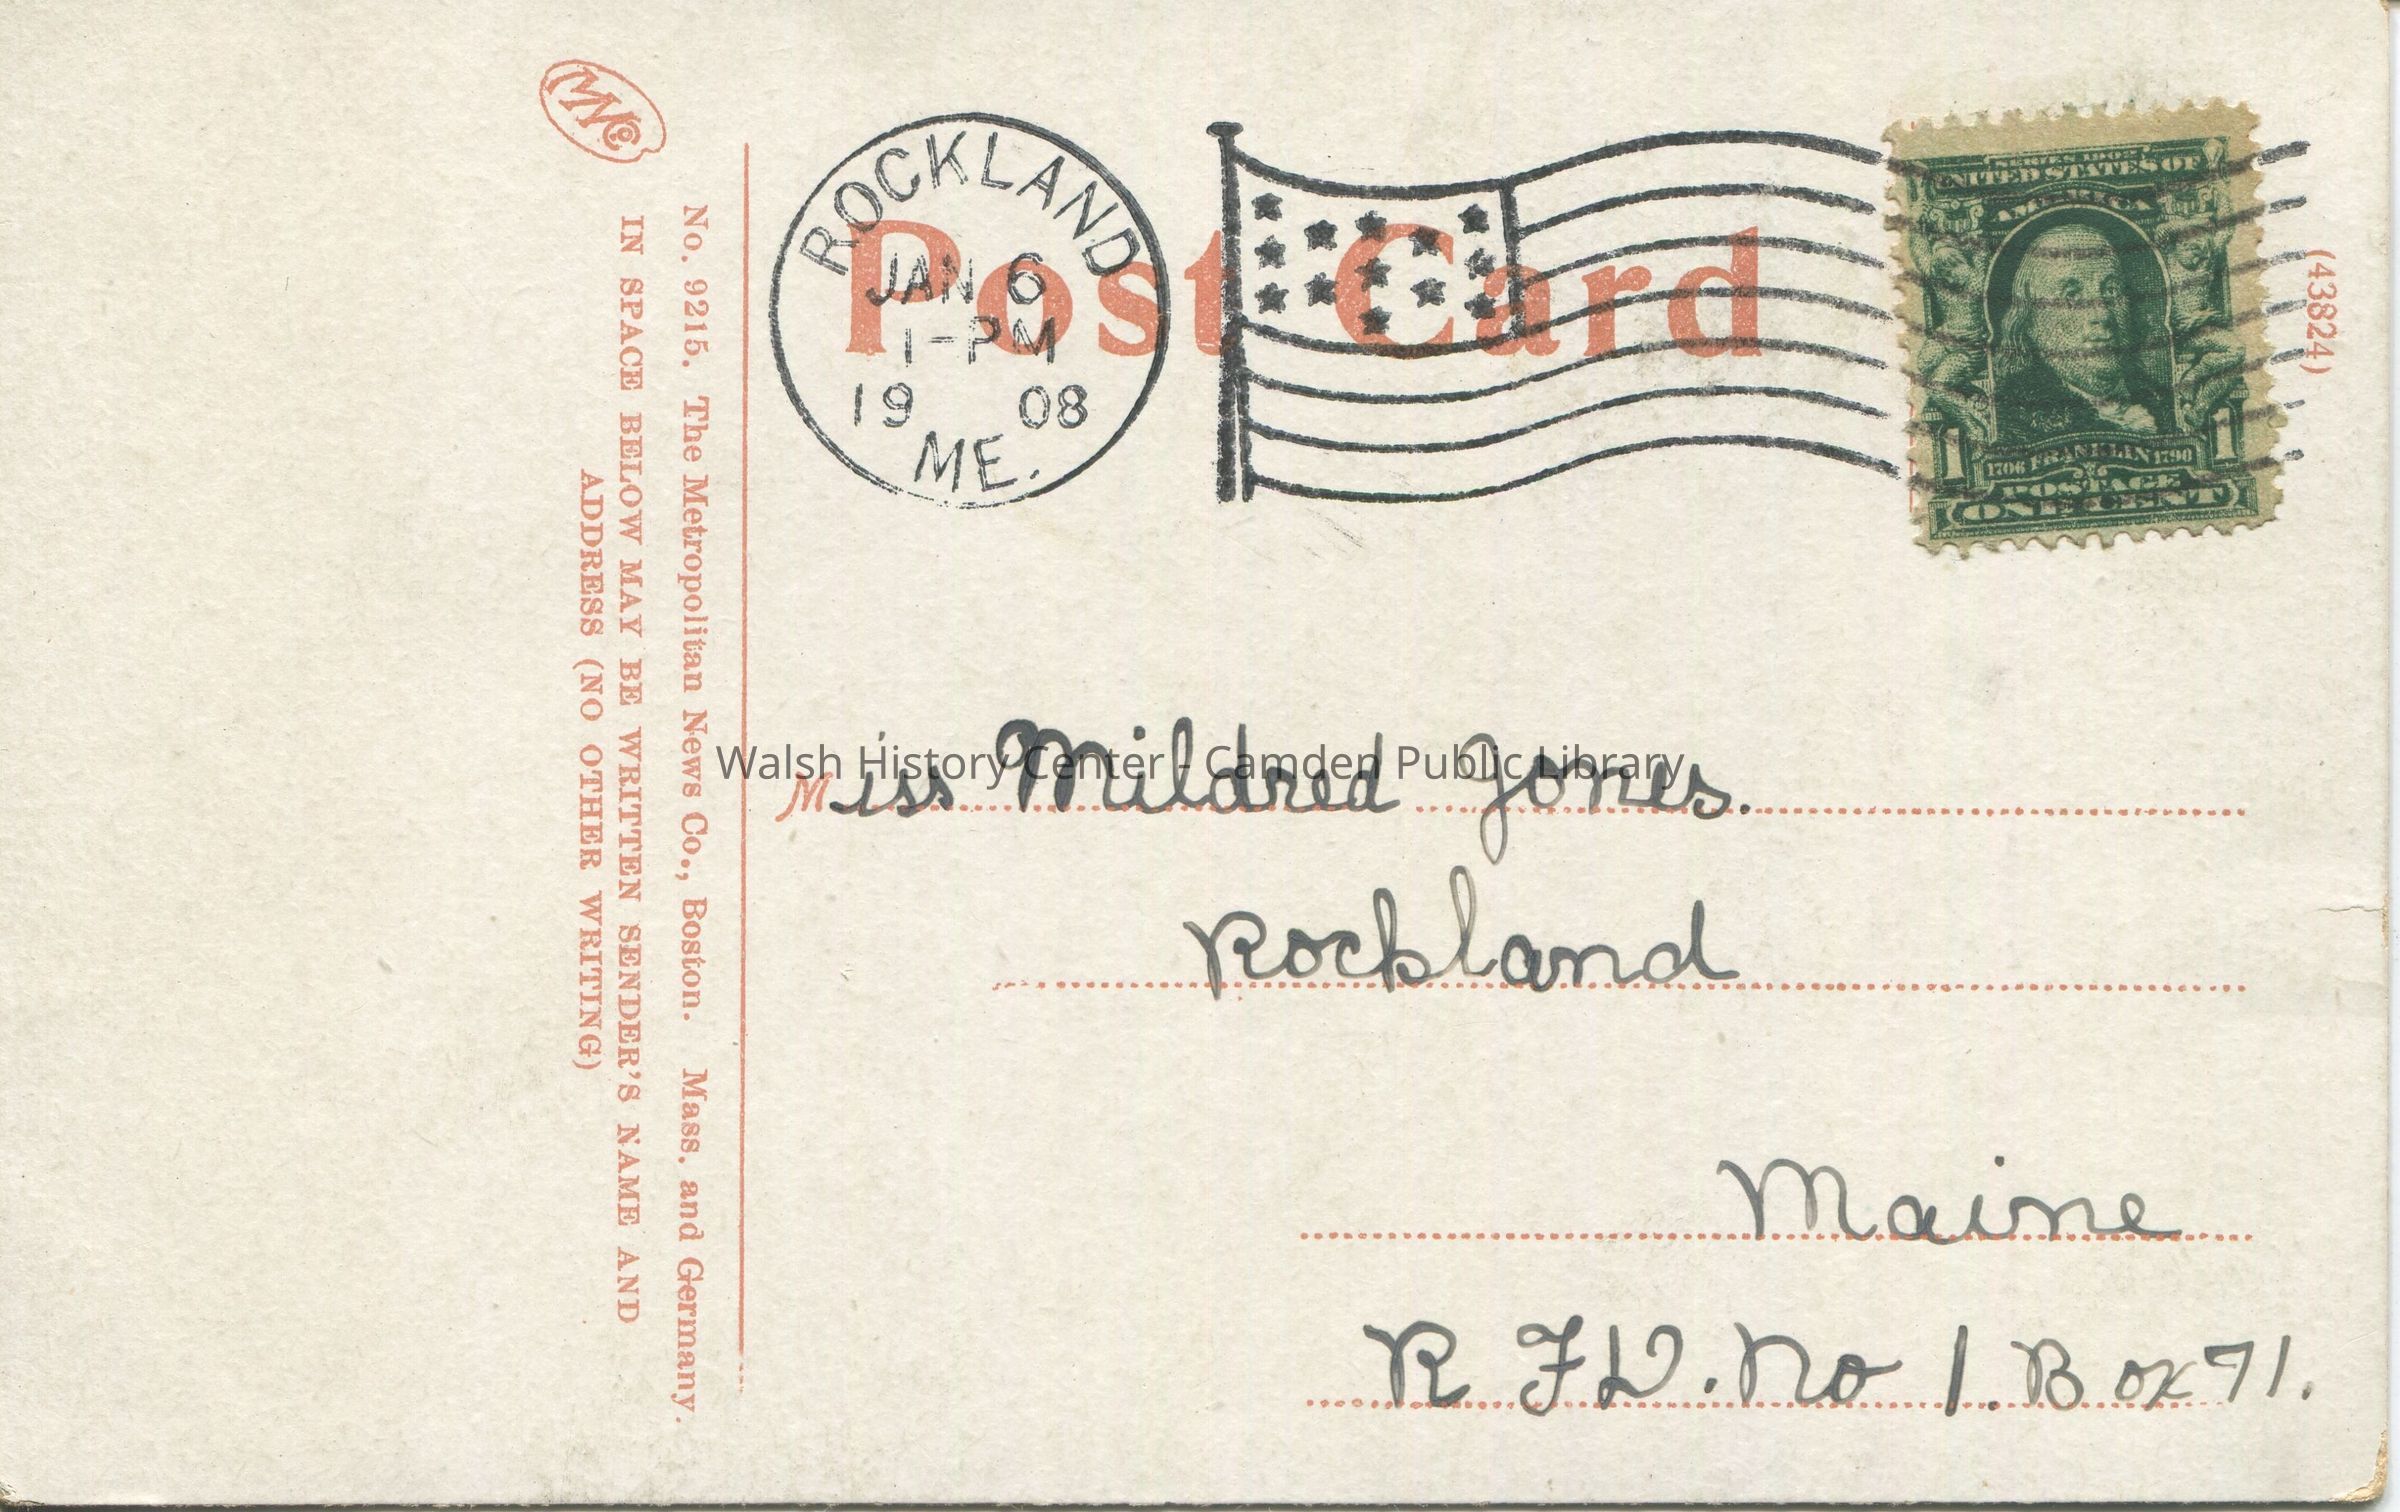 MNCo
No. 9215. The Metropolitan News Co., Boston. Mass. and Germany.
IN SPACE BELOW MAY BE WRITTEN SENDER'S NAME AND
ADDRESS (NO OTHER WRITING)
Post Card
ROCKLAND
JAN 6
1-PM
19 08
ME.
SERIES 1902
UNITED STATES OF
AMERICA
1 1706 FRANKLIN 1790 1
POSTAGE
ONE CENT
(43824)
Walsh History Center - Camden Public Library
Miss Mildred Jones.
Rockland
Maine
R F D. No 1. Box 71.